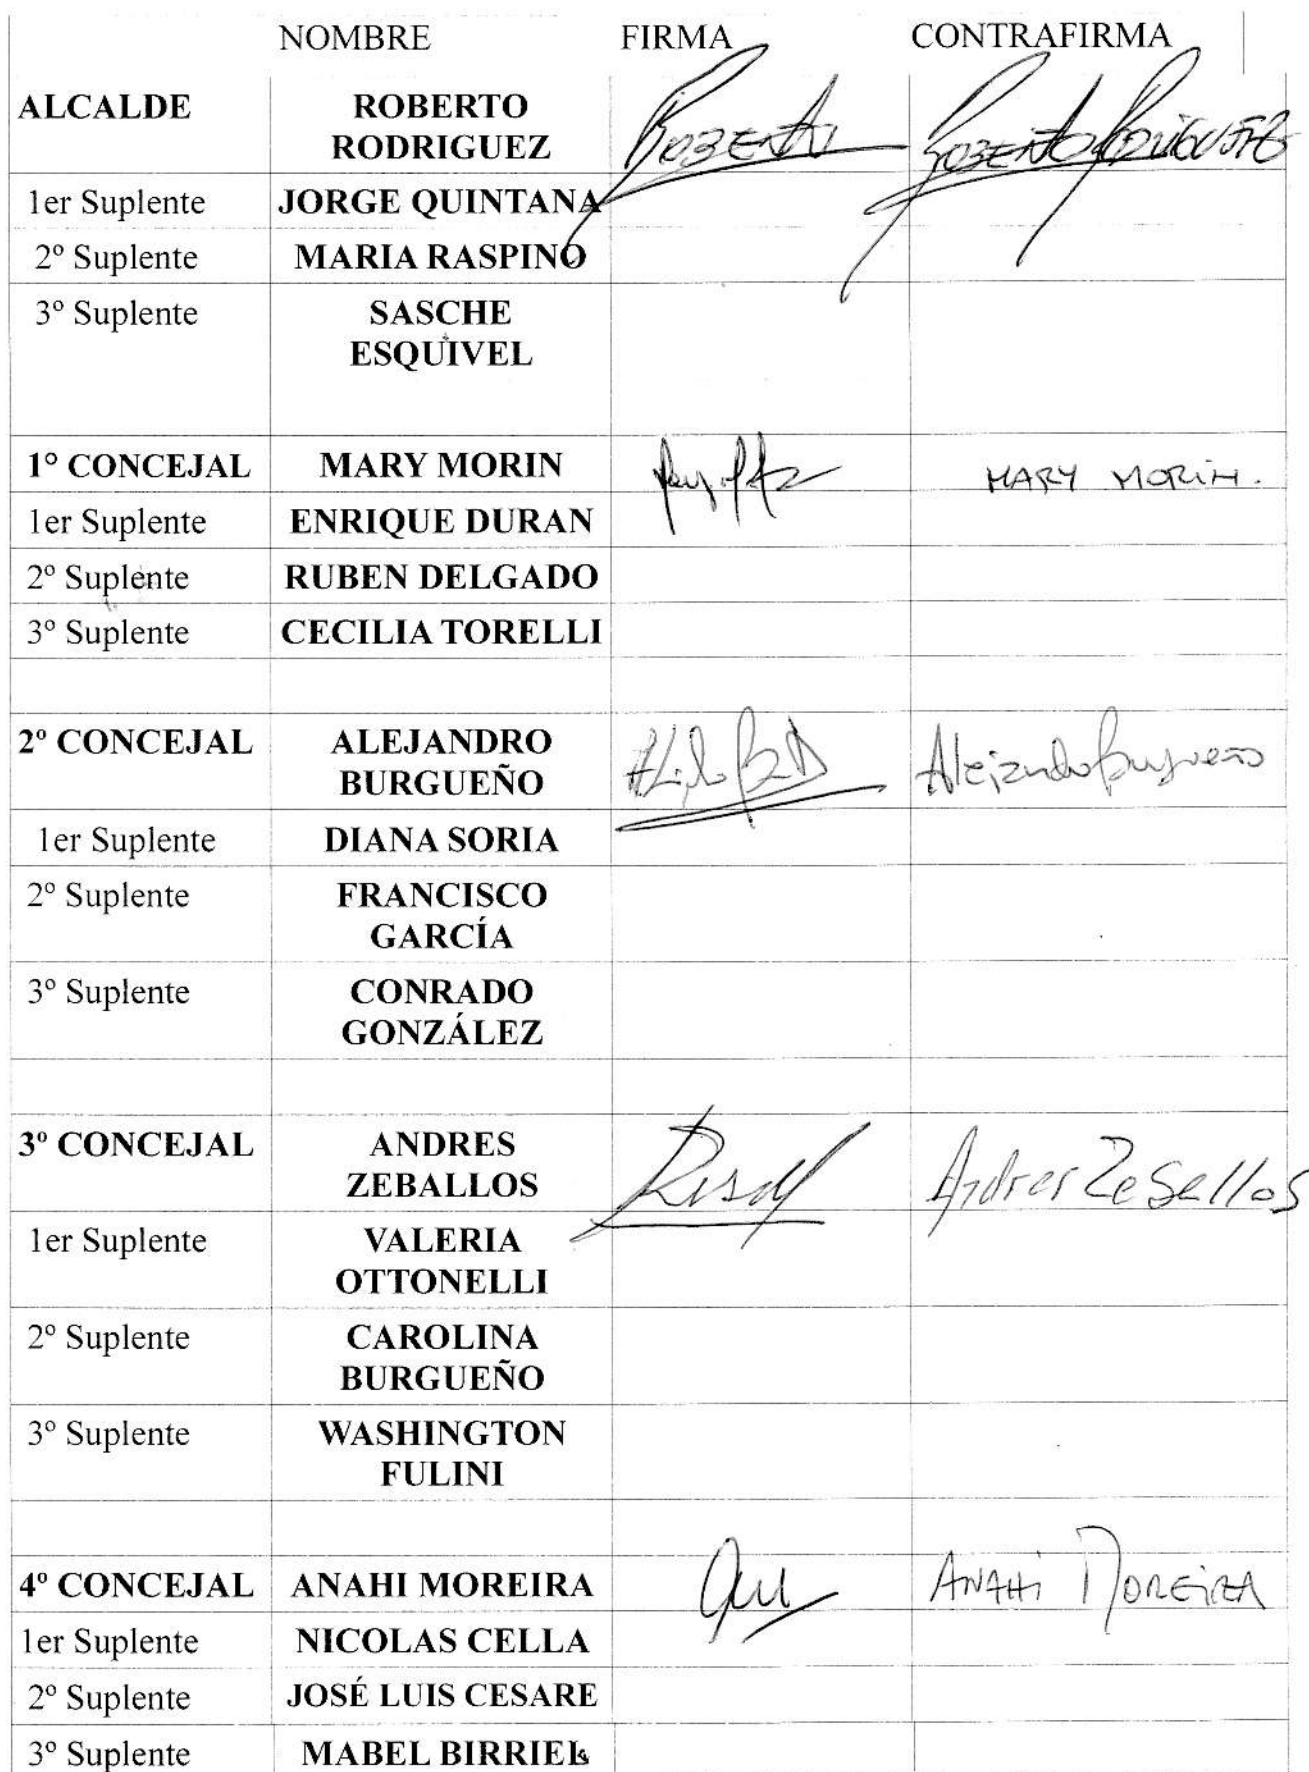 NOMBRE FIRMA CONTRAFIRMA
ALCALDE ROBERTO
RODRIGUEZ
1er Suplente JORGE QUINTANA
2º Suplente MARIA RASPINO
3º Suplente SASCHE
ESQUIVEL
1° CONCEJAL MARY MORIN MARY MORIN.
1er Suplente ENRIQUE DURAN
2º Suplente RUBEN DELGADO
3º Suplente CECILIA TORELLI
2º CONCEJAL ALEJANDRO Alejandro Burgueño
BURGUEÑO
1er Suplente DIANA SORIA
2º Suplente FRANCISCO
GARCÍA
3º Suplente CONRADO
GONZÁLEZ
3º CONCEJAL ANDRES Andres Zeballos
ZEBALLOS
1er Suplente VALERIA
OTTONELLI
2º Suplente CAROLINA
BURGUEÑO
3º Suplente WASHINGTON
FULINI
4º CONCEJAL ANAHI MOREIRA ANAHi MOREiRA
1er Suplente NICOLAS CELLA
2º Suplente JOSÉ LUIS CESARE
3º Suplente MABEL BIRRIEL